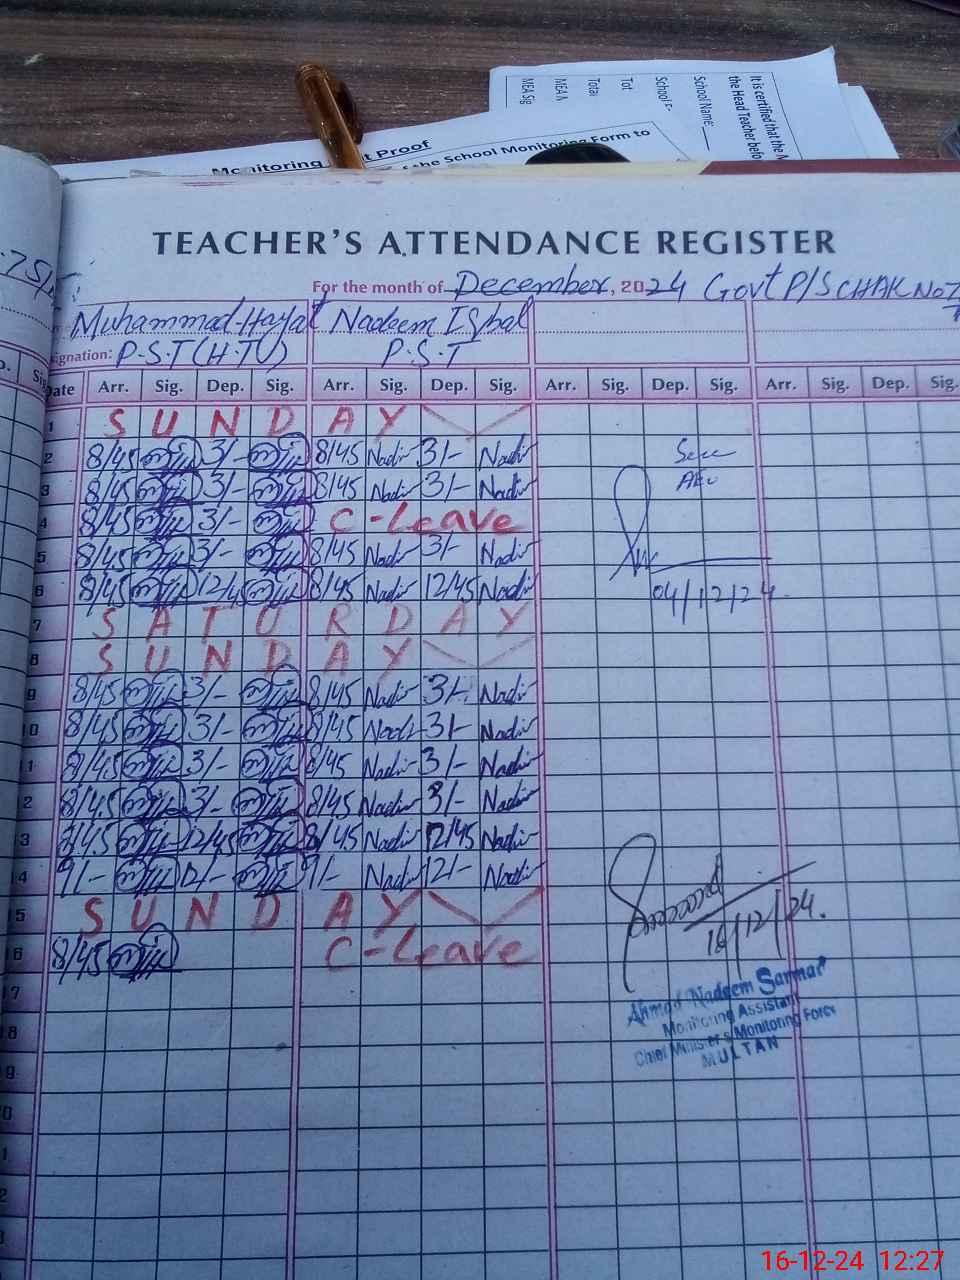 It is certified that the M
the Head Teacher befo
School Name:
School
Tot
Total
MEA N
MEA Sig
Monitoring Proof
of the School Monitoring Form to
TEACHER'S ATTENDANCE REGISTER
For the month of December, 2024 Govt P/S CHAK No 7
Muhammad Hayat Nadeem Iqbal
signation: P.S.T (H.T) P.S.T
Date Arr. Sig. Dep. Sig. Arr. Sig. Dep. Sig. Arr. Sig. Dep. Sig. Arr. Sig. Dep. Sig.
1 S U N D A Y
2 8/45 3/- 8/45 Nadir 3/- Nadir
3 8/45 3/- 8/45 Nadir 3/- Nadir
4 8/45 3/- C-Leave
5 8/45 3/- 8/45 Nadir 3/- Nadir
6 8/45 12/45 8/45 Nadir 12/45 Nadir
04/12/24
7 S A T U R D A Y
8 S U N D A Y
9 8/45 3/- 8/45 Nadir 3/- Nadir
10 8/45 3/- 8/45 Nadir 3/- Nadir
1 8/45 3/- 8/45 Nadir 3/- Nadir
2 8/45 3/- 8/45 Nadir 3/- Nadir
3 8/45 12/45 8/45 Nadir 12/45 Nadir
4 9/- 12/- 9/- Nadir 12/- Nadir
5 S U N D A Y
16/12/24.
6 8/45 C-Leave
Ahmad Nadeem Sarmad
Monitoring Assistant
Chief Minister's Monitoring Force
MULTAN
7
8
9
0
1
2
3
16-12-24 12:27